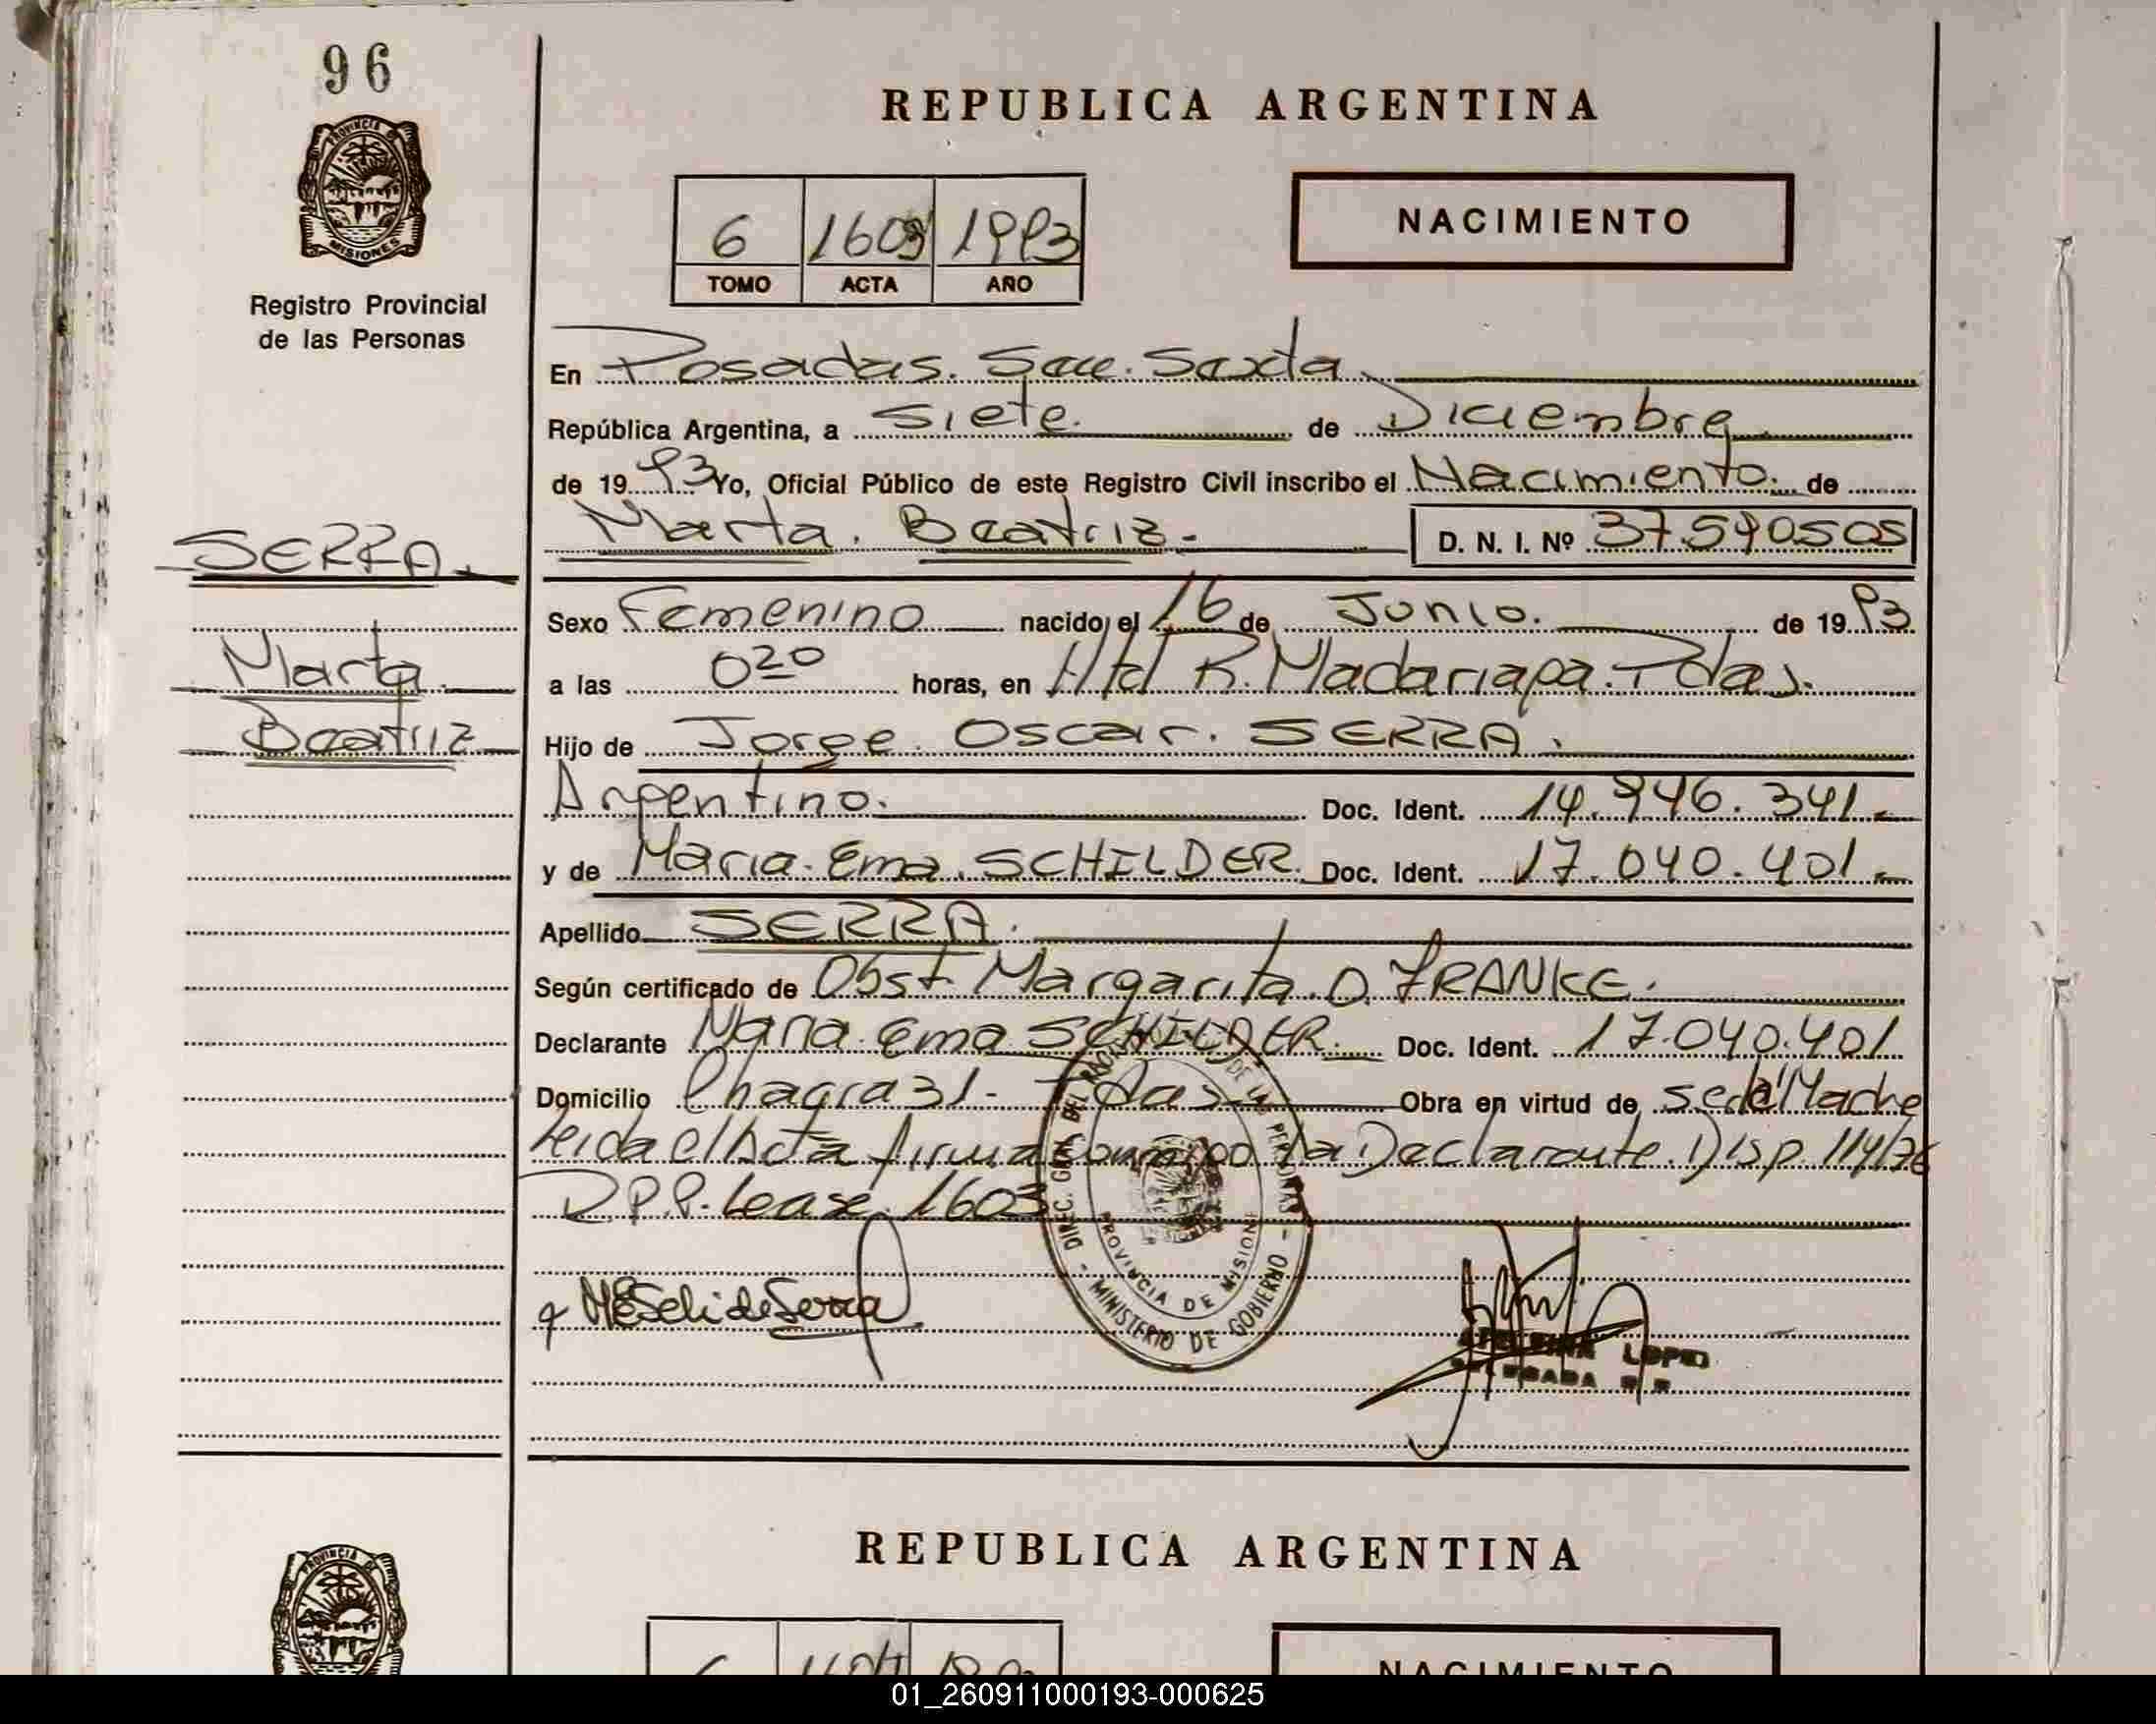 96
PROVINCIA DE
MISIONES
Registro Provincial
de las Personas
REPUBLICA ARGENTINA
6 1603 1993
TOMO ACTA AÑO
NACIMIENTO
En Posadas. Secc. Sexta
República Argentina, a siete. de Diciembre
de 19 93 Yo, Oficial Público de este Registro Civil inscribo el Nacimiento. de
Marta. Beatriz.- D. N. I. Nº 37.590505
SERRA.
Marta
Beatriz
Sexo Femenino nacido el 16 de Junio. de 19 93
a las 0 20 horas, en Htal R. Madariaga. Pdas.
Hijo de Jorge. Oscar. SERRA.
Argentino. Doc. Ident. 14.946.341.-
y de Maria. Ema. SCHILDER. Doc. Ident. 17.040.401.-
Apellido SERRA.
Según certificado de Obst. Margarita. O. FRANKE.
Declarante Maria. Ema SCHILDER. Doc. Ident. 17.040.401
Domicilio Chacra 31- Pdas Obra en virtud de ser la Madre
leida el Acta firma conmigo la Declarante. Disp. 114/76
R.P.P. Lease. 1603
DIREC. GRAL DEL REG. DE LAS PERSONAS - MINISTERIO DE GOBIERNO -
PROVINCIA DE MISIONES
MESchi de Serra
LOPEZ
REPUBLICA ARGENTINA
PROVINCIA DE
NACIMIENTO
01_260911000193-000625